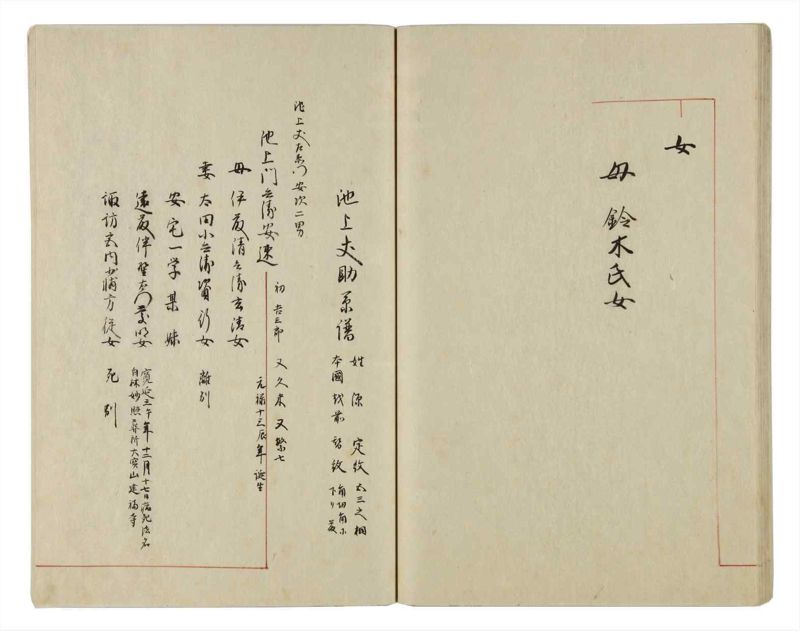 女
母 鈴木氏女
池上丈助系譜
姓 源 定紋 五三之桐
本國 越前 替紋 角切角ニ
下り藤
池上丈左衛門安次二男
池上門兵衛安速
初 吉三郎 又久米 又繁七
元禄十三辰年誕生
母 伊藤清兵衛玄清女
妻 太田小兵衛資行女 離別
安宅一学某妹
遠藤伴左衛門女
諏訪玄内 方従女 死別
寛延三午年十二月十七日病死法名
自林妙照葬所大宝山建福寺